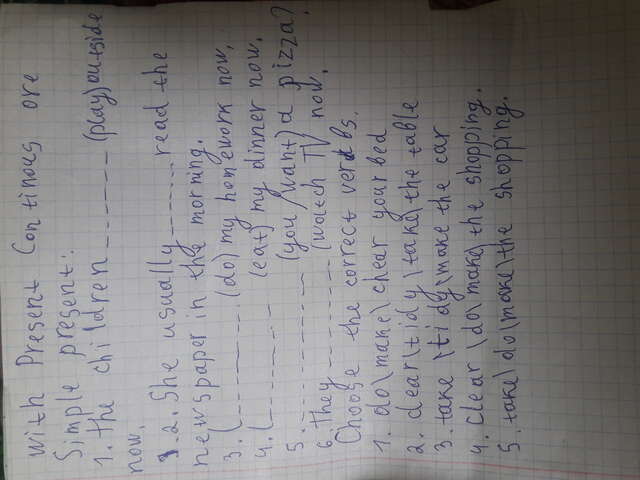 with Present Continous ore
Simple present:
1. the children ------ (play) outside
now.
1.2. She usually ------- read the
newspaper in the morning.
3. I --------- (do) my homework now,
4. I --------- (eat) my dinner now.
5. ----------- (you/want) a pizza?
6. They -------- (watch TV now.
Choose the correct verbs.
1. do\make\ chear your bed
2. clear\tidy\take\the table
3. take \tidy\make the car
4. clear \do\make\ the shopping.
5. take\ do\make\the shopping.